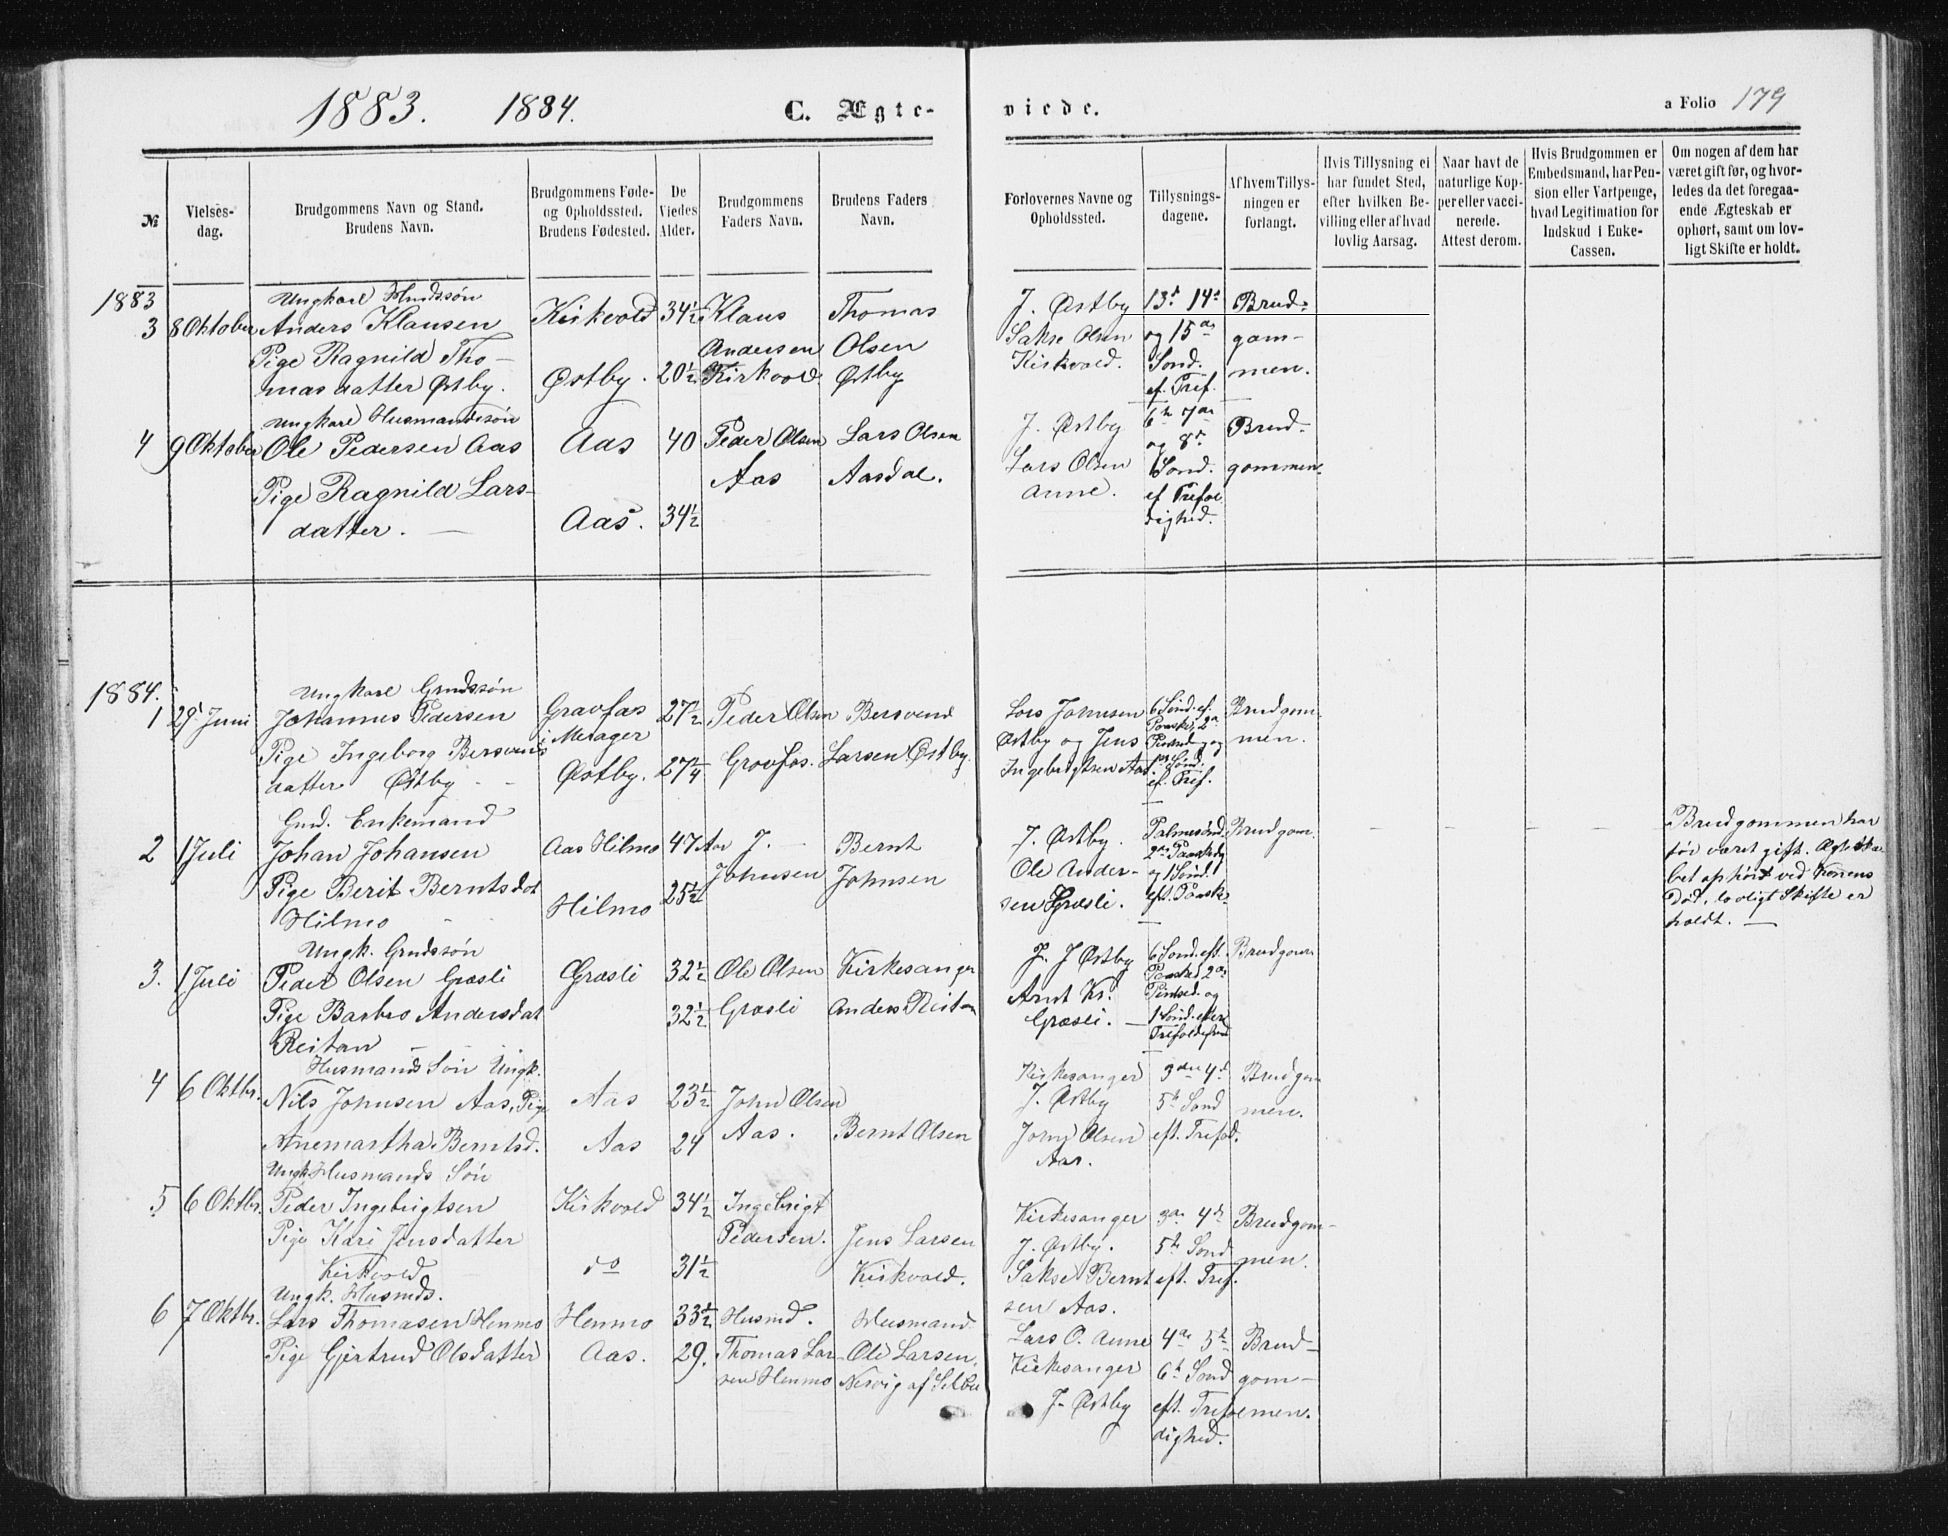 1883. 1884. C. Ægte-
viede.
a Folio 179
№
Vielses-
dag.
Brudgommens Navn og Stand.
Brudens Navn.
Brudgommens Føde-
og Opholdssted.
Brudens Fødested.
De
Viedes
Alder.
Brudgommens
Faders Navn.
Brudens Faders
Navn.
Forlovernes Navne og
Opholdssted.
Tillysnings-
dagene.
Af hvem Tillys-
ningen er
forlangt.
Hvis Tillysning ei
har fundet Sted,
efter hvilken Be-
villing eller af hvad
lovlig Aarsag.
Naar havt de
naturlige Kop-
per eller vacci-
nerede.
Attest derom.
Hvis Brudgommen er
Embedsmand, har Pen-
sion eller Vartpenge,
hvad Legitimation for
Indskud i Enke-
Cassen.
Om nogen af dem har
været gift før, og hvor-
ledes da det foregaa-
ende Ægteskab er
ophørt, samt om lov-
ligt Skifte er holdt.
1883
3
8 Oktober
Ungkarl
Anders Klausen
Pige Ragnild Tho-
masdatter Østby.
Kirkvold
Østby.
34½
20½
Klaus
Andersen
Kirkvold
Thomas
Olsen
Østby
J. Østby
Sakse Olsen
Kirkvold.
13d 14d
og 15de
Sønd.
ef. Tref.
Brud-
gom-
men.
4
9 Oktober
Ungkarl Husmandssøn
Ole Pedersen Aas
Pige Ragnild Lars-
datter. —
Aas
Aas.
40
34½
Peder Olsen
Aas
Lars Olsen
Aasdal.
J. Østby
Lars Olsen
Aune.
6te 7de
og 8d
Sønd.
ef Trefol
dighed.
Brud-
gommen.
1884.
1
29 Juni
Ungkarl Grudssøn
Johannes Pedersen
Pige Ingeborg Bersvends
datter Østby
Gravfas
i Merager
Østby.
27½
27¼
Peder Olsen
Gravfos.
Bersvend
Larsen Østby
Lars Johnsen
Østby og Jens
Ingebrigtsen Aas
6 Sønd. ef.
Paaske, 2da
Pintsed. og
1ste Sønd.
ef. Tref.
Brudgom-
men.
2
1 Juli
Grud. Enkemand
Johan Johansen
Pige Berit Berntsdat
Hilmo
Aas Hilmo
Hilmo
47 Aar
25½
J. —
Johnsen
Bernt
Johnsen
J. Østby.
Ole Ander-
sen Græsli.
Palmesønd.
2den Paaskedg
og 1 Sønd.
eft. Paaske
Brudgom.
Brudgommen har
før været gift. Ægteska
bet ophørt ved Konens
Død, lovligt Skifte er
holdt. —
3.
1 Juli
Ungk. Grudssøn
Peder Olsen Græsli
Pige Barbro Andersdat
Reitan
Græsli
32½
32½
Ole Olsen
Græsli
Kirkesanger
Anders Reitan
J. Østby
Arnt Kr.
Græsli. —
6 Sønd. eft.
Paaske 2den
Pintsed. og
1 Sønd. efter
Brudgom
4
6 Oktbr.
Husmands Søn Ungk.
Nils Johnsen Aas, Pige
Anemartha Berntsd.
Aas
Aas
23½
24
John Olsen
Aas.
Bernt Olsen
Kirkesanger
J. Østby
John Olsen
Aas.
3die 4d
5te Sønd
eft. Trefold.
Brudgom
men.
5
6 Oktbr.
Ungk. Husmands Søn
Peder Ingebrigtsen
Pige Kari Jensdatter
Kirkvold
Kirkvold
do
34½
31½
Ingebrigt
Pedersen.
Jens Larsen
Kirkvold.
Kirkesanger
J. Østby.
Sakse Bernt
sen Aas.
3die 4de
5te Sønd
eft. Tref.
Brudgom-
men.
6
7 Oktbr.
Ungk. Husmds.
Lars Thomasen Henmo
Pige Gjertrud Olsdatter
Henmo
Aas.
33½
29.
Husmd.
Thomas Lar-
sen Henmo
Husmand
Ole Larsen,
Nervig af Selbu
Lars O. Aune
Kirkesanger
J. Østby
4de 5te
6te Sønd
eft. Trefol
dighed.
Brud-
gom-
men.